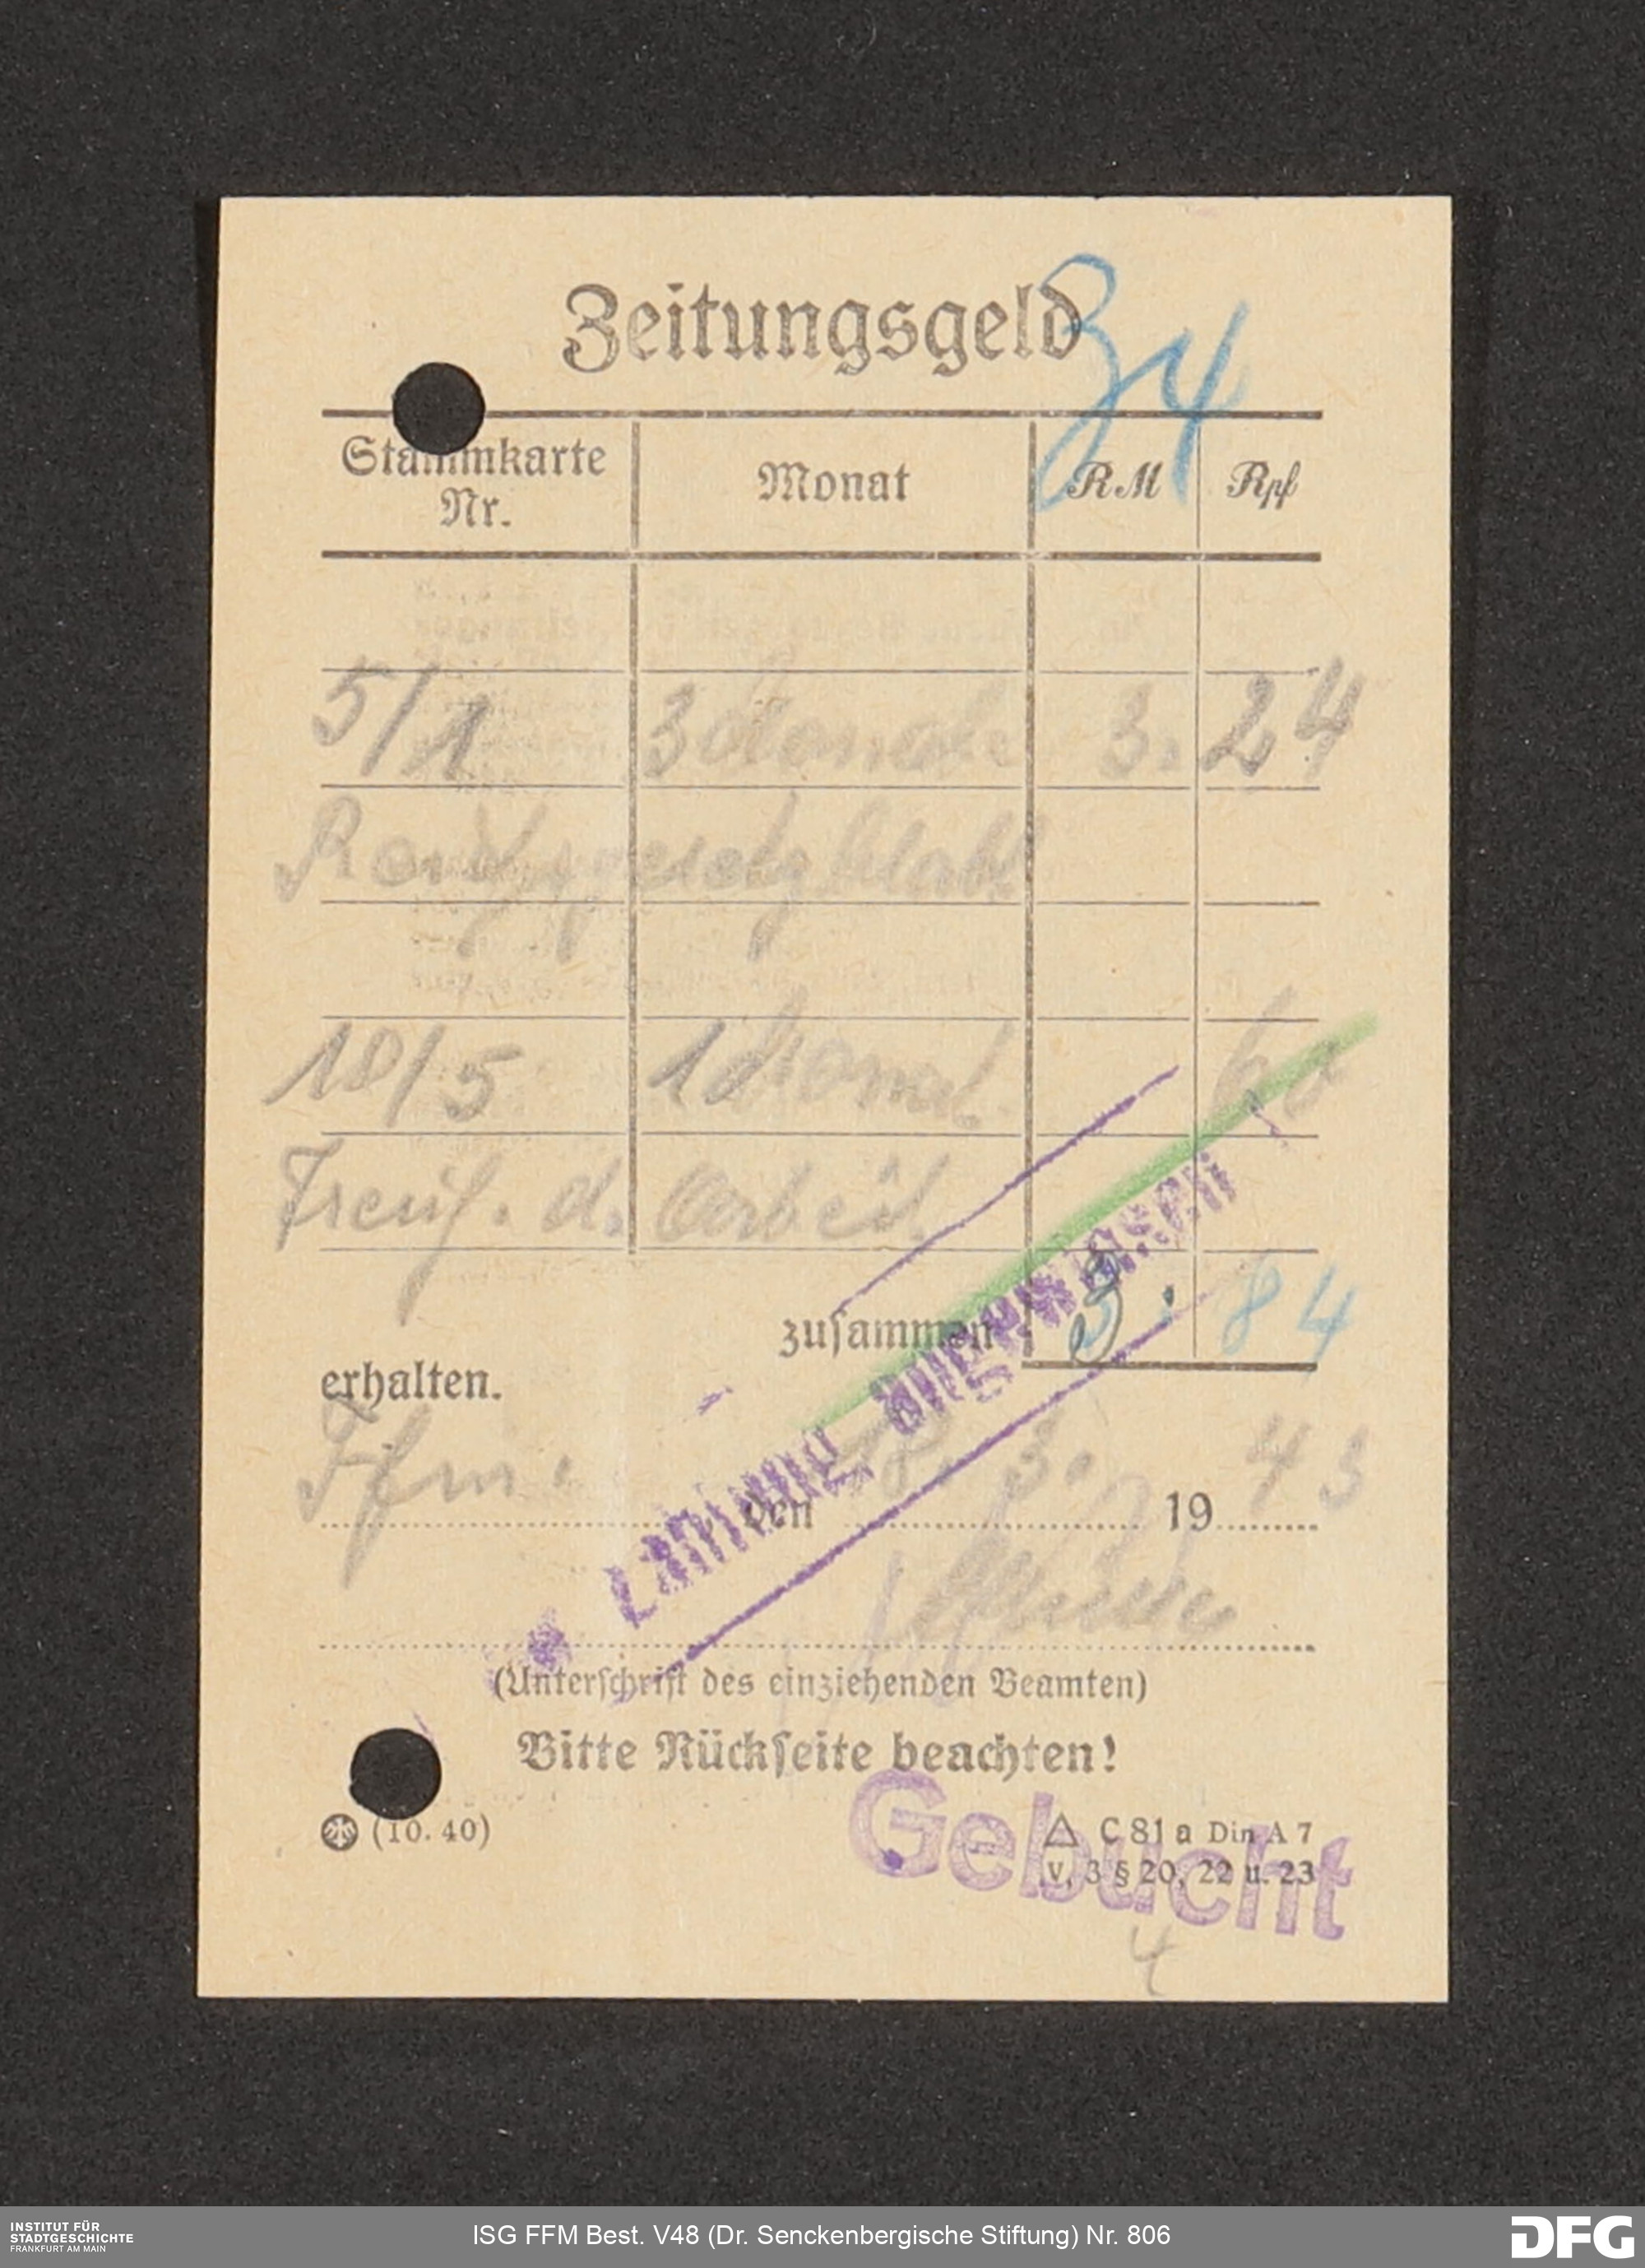 Zeitungsgeld
34
Stammkarte Nr. Monat RM Rpf
5/1 3 Monate 3. 24
Reichsgesetzblatt
10/5 1 Monat 60
d. Arbeit
zusammen 3. 84
erhalten.
Ffm. den 18. 3. 1943
Zahlung angewiesen
(Unterschrift des einziehenden Beamten)
Bitte Rückseite beachten!
Gebucht
(10. 40) C 81 a Din A 7
V, 3 § 20, 22 u. 23
4
INSTITUT FÜR
STADTGESCHICHTE
FRANKFURT AM MAIN
ISG FFM Best. V48 (Dr. Senckenbergische Stiftung) Nr. 806
DFG